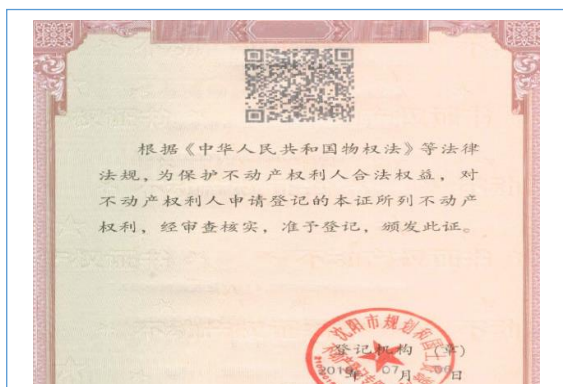 根据《中华人民共和国物权法》等法律
法规，为保护不动产权利人合法权益，对
不动产权利人申请登记的本证所列不动产
权利，经审查核实，准予登记，颁发此证。
沈阳市规划和国土资
登记机构（章）
年 07月 日